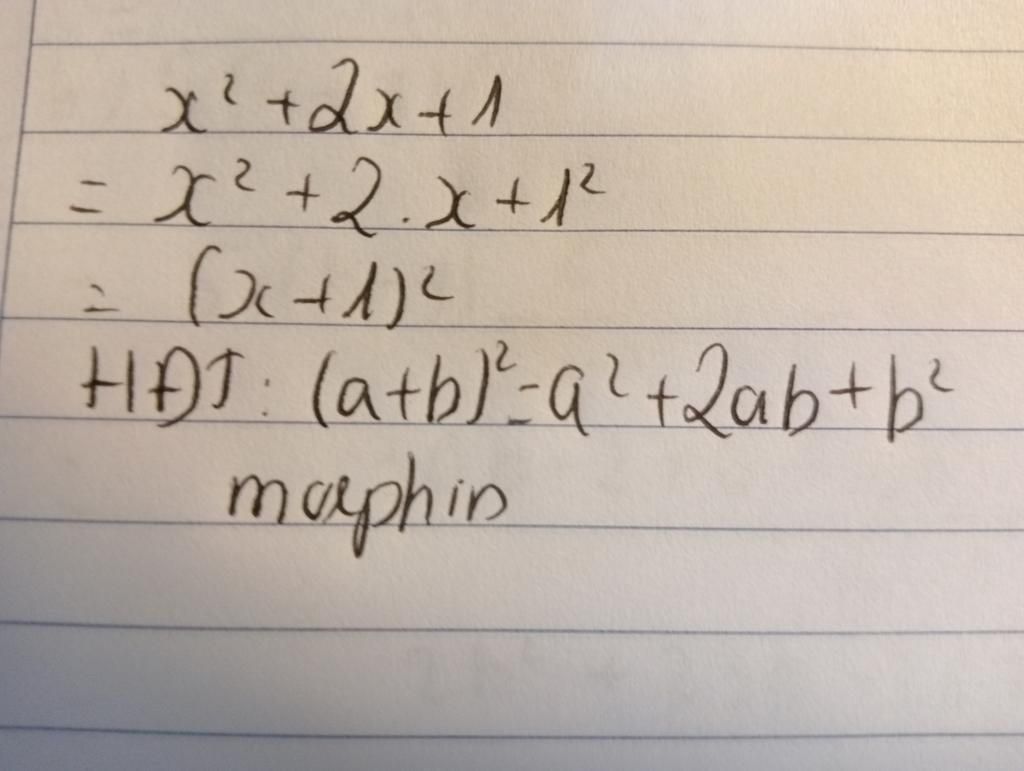 x² + 2x + 1
= x² + 2 . x + 1²
= (x + 1)²
HĐT : (a+b)² = a² + 2ab + b²
morphin